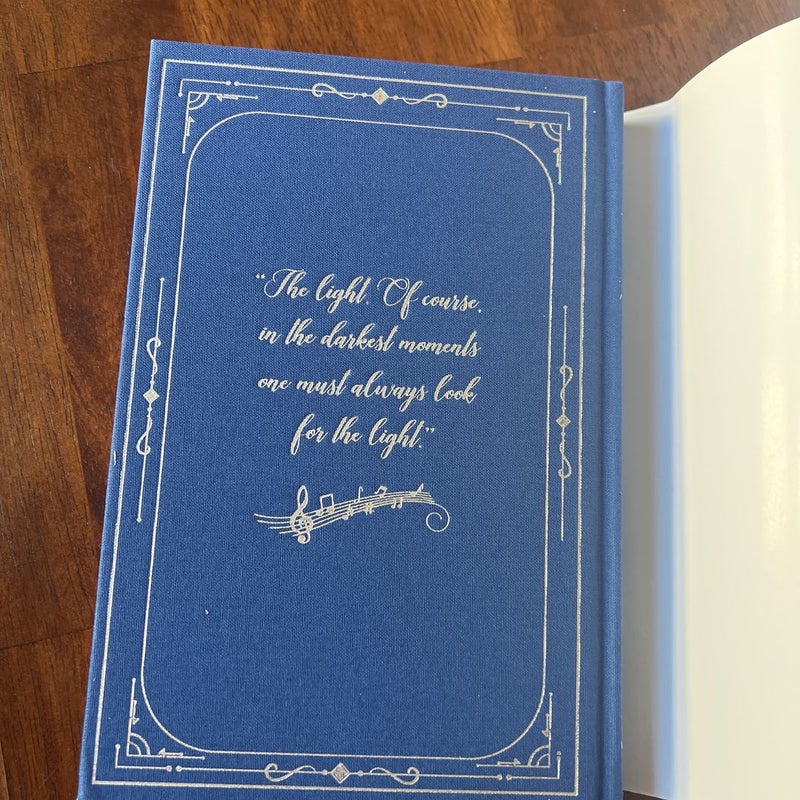 “The light. Of course,
in the darkest moments
one must always look
for the light.”